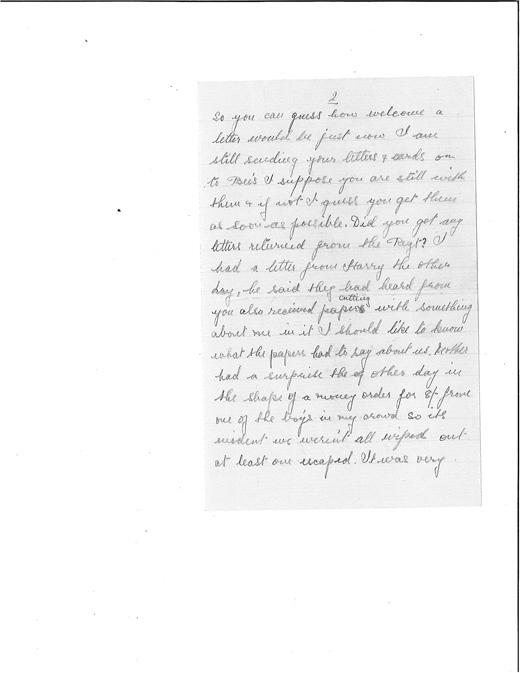 2
So you can guess how welcome a
letter would be just now I am
still sending your letters & cards on
to Bee's I suppose you are still with
them & if not I guess you get them
as soon as possible. Did you get any
letters returned from the Regt? I
had a letter from Harry the other
day, he said they had heard from
you also received papers cutting with something
about me in it I should like to know
what the papers had to say about us. Mother
had a surprise the other day in
the shape of a money order for 8/- from
one of the boys in my crowd so its
evident we weren't all wiped out
at least one escaped. It was very